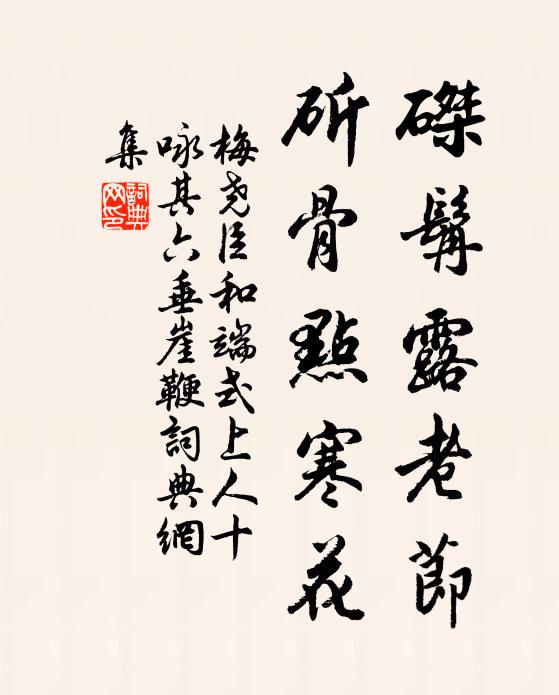 磔髯露老節
斫骨點寒花
梅尧臣和端式上人十
咏其六垂崖鞭詞典網
集
詞典
网印